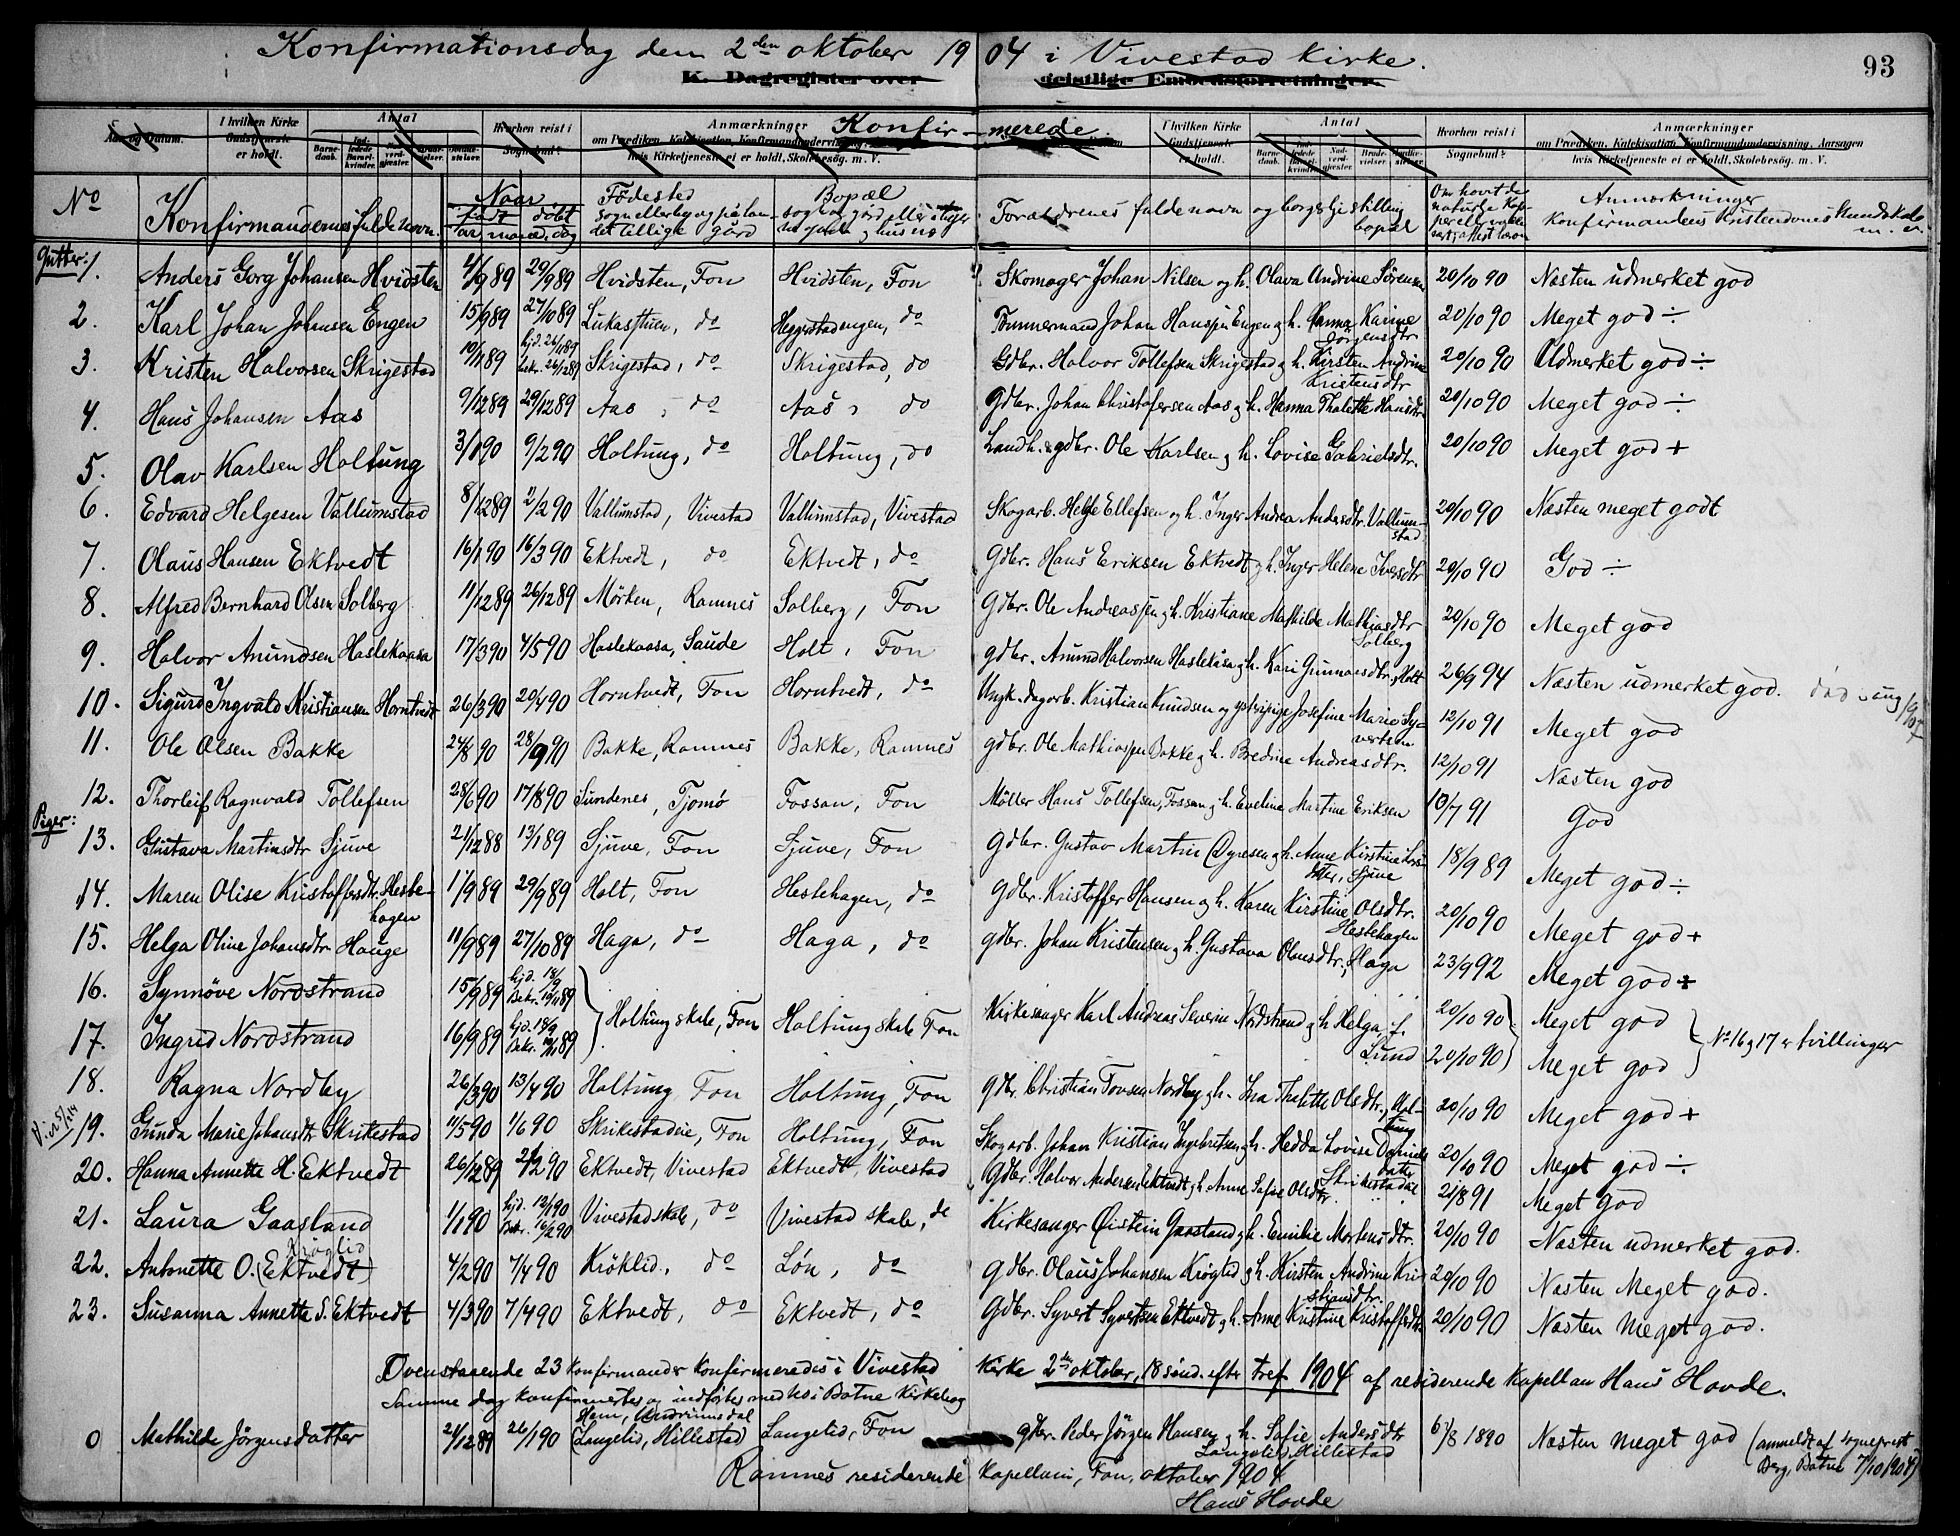 Konfirmationsdag den 2den oktober 1904 i Vivestad Kirke.
93
K. Dagregister over geistlige Embedsforretninger.
Aar og Datum. I hvilken Kirke Gudstjeneste er holdt. Antal Hvorhen reist i Sognebud? Anmærkninger om Prædiken, Katekisation, Konfirmandundervisning, hvis Kirketjeneste ei er holdt, Skolebesög. m. V.
Konfirmerede.
I hvilken Kirke Gudstjeneste er holdt. Antal Hvorhen reist i Sognebud? Anmærkninger om Prædiken, Katekisation, Konfirmandundervisning, Aarsagen hvis Kirketjeneste ei er holdt, Skolebesög. m. V.
No Konfirmandernes fulde navn. Naar født døbt aar, maaned, dag Fødested sogn eller by og paa landet tillige gård Bopæl Forældrenes fulde navn og borgerlje stilling bopæl Anmerkninger Konfirmandens Kristendomskundskab m. v.
Gutter: 1. Anders Gorg Johansen Hvidsten 4/9 89 29/9 89 Hvidsten, Fon Hvidsten, Fon Skomager Johan Nilsen og h. Olava Andrine Sørensen 20/10 90 Næsten udmerket god
2. Karl Johan Johansen Engen 15/9 89 27/10 89 Lukasstuen, do Heggestadengen, do Tømmermand Johan Hanssen Engen & h. Hanna Karine Jørgensdtr 20/10 90 Meget god ÷
3. Kristen Halvorsen Skrigestad 10/11 89 hjd. 26/11 89 bekr. 26/12 89 Skrigestad, do Skrigestad, do Gdbr. Halvor Tollefsen Skrigestad & h. Kirsten Andrine Kristensdtr 20/10 90 Udmerket god ÷
4. Hans Johansen Aas 9/12 89 29/12 89 Aas, do Aas, do Gdbr. Johan Christofersen Aas & h. Hanna Thalette Hansdtr 20/10 90 Meget god ÷
5. Olav Karlsen Holtung 3/1 90 9/2 90 Holtung, do Holtung, do Landh. & gdbr. Ole Karlsen & h. Lovise Gabrielsdtr. 20/10 90 Meget god +
6. Edvard Helgesen Vallumstad 8/12 89 2/2 90 Vallumstad, Vivestad Vallumstad, Vivestad Skogarb. Helge Ellefsen og h. Inger Andrea Andersdtr. Vallumstad 20/10 90 Næsten meget godt
7. Olaus Hansen Ektvedt 16/1 90 16/3 90 Ektvedt, do Ektvedt, do Gdbr. Hans Eriksen Ektvedt & h. Inger Helene Iversdtr 20/10 90 God ÷
8. Alfred Bernhard Olsen Solberg 11/12 89 26/12 89 Mörken, Ramnes Solberg, Fon Gdbr. Ole Andreassen & h. Kristiane Mathilde Mathiasdtr Solberg 20/10 90 Meget god
9. Halvor Anundsen Haslekaasa 17/3 90 4/5 90 Haslekaasa, Saude Holt, Fon Gdbr. Anund Halvorsen Haslekåsa & h. Kari Gunnarsdtr, Holt 26/9 94 Næsten udmerket god. død aug 1907
10. Sigurd Ingvald Kristiansen Horntvedt 26/3 90 20/4 90 Horntvedt, Fon Horntvedt, do Ungk. dagarb. Kristian Knudsen og pige Josefine Marie Syvertsen 12/10 91 Meget god
11. Ole Olsen Bakke 24/8 90 28/9 90 Bakke, Ramnes Bakke, Ramnes gdbr. Ole Mathiassen Bakke & h. Bredine Andreasdtr. 12/10 91 Næsten god
12. Thorleif Ragnvald Tollefsen 28/6 90 17/8 90 Sundenes, Tjomø Fossan, Fon Möller Hans Tollefsen, Fossan & h. Eveline Martine Eriksen 10/7 91 God
Piger: 13. Gustava Martinsdtr Sjuve 21/12 88 13/1 89 Sjuve, Fon Sjuve, Fon Gdbr. Gustav Martin & h. Anne Kirstine Sjuve 18/9 89 Meget god ÷
14. Maren Olise Kristoffersdtr. Hestehagen 1/9 89 29/9 89 Holt, Fon Hestehagen, do Gdbr. Kristoffer Hansen & h. Karen Kirstine Olsdtr. Hestehagen 20/10 90 Meget god +
15. Helga Oline Johansdtr. Hauge 11/9 89 27/10 89 Haga, do Haga, do gdbr. Johan Kristensen & h. Gustava Olausdtr, Haga 23/9 92 Meget god +
16. Synnöve Nordstrand 15/9 89 hjd. 18/9 Bekr. 10/11 89 Holtung skole, Fon Holtung skole Fon Kirkesanger Karl Andreas Severin Nordstrand & h. Helga f. Lund 20/10 90 Meget god
17. Ingrid Nordstrand 16/9 89 hjd. 18/9 Bekr. 10/11 89 20/10 90 Meget god No 16 & 17 er tvillinger
18. Ragna Nordby 26/3 90 13/4 90 Holtung Fon Holtung, Fon gdbr. Christian Tovsen Nordby & h. Ina Thalette Olsdtr., Holtung 20/10 90 Meget god +
19. Gunda Marie Johansdtr Skrikestad 11/5 90 1/6 90 Skrikestadeie, Fon Holtung, Fon Skogarb. Johan Kristian Ingebretsen & h. Hedda Lovise Danielsdatter Skrikestadeie 20/10 90 Meget god ÷
20. Hanna Annette H. Ektvedt 26/12 89 2/2 90 Ektvedt, Vivestad Ektvedt, Vivestad Gdbr. Halvor Andersen Ektvedt & h. Anne Sofie Olsdtr. 21/8 91 Meget god
21. Laura Gaasland 1/1 90 hjd. 12/1 90 Bekr. 16/2 90 Vivestad skole, do Vivestad skole, do Kirkesanger Øistein Gaasland & h. Emilie Mortensdtr. 20/10 90 Næsten udmerket god.
22. Antonette O. (Ektvedt) Krøglid 4/2 90 7/4 90 Kröklid, do Løn, do gdbr. Olaus Johansen Krøglid & h. Kirsten Andrine Kristiansdtr. 20/10 90 Næsten Meget god.
23. Susanna Annette S. Ektvedt 4/3 90 7/4 90 Ektvedt, do Ektvedt, do Gdbr. Syvert Syvertsen Ektvedt & h. Anne Kristine Kristoffersdtr. 20/10 90 Næsten Meget god.
Ovenstaaende 23 konfirmander konfirmeredes i Vivestad Kirke 2den oktober, 18 sönd. efter tref. 1904 af residerende Kapellan Hans Hovde.
Samme dag konfirmertes og indførtes med No i Botne Kirkebog
0 Mathilde Jörgensdatter 21/12 89 26/1 90 (Langelid, Hillestad) Langelid, Fon gdbr. Peder Jörgen Hansen & h. Sofie Andersdtr Langelid, Hillestad 6/8 1890 Næsten meget god (anmeldt af sogneprest Berg, Botne 7/10 1904)
Ramnes residerende Kapellani, Fon, oktober 1904
Hans Hovde